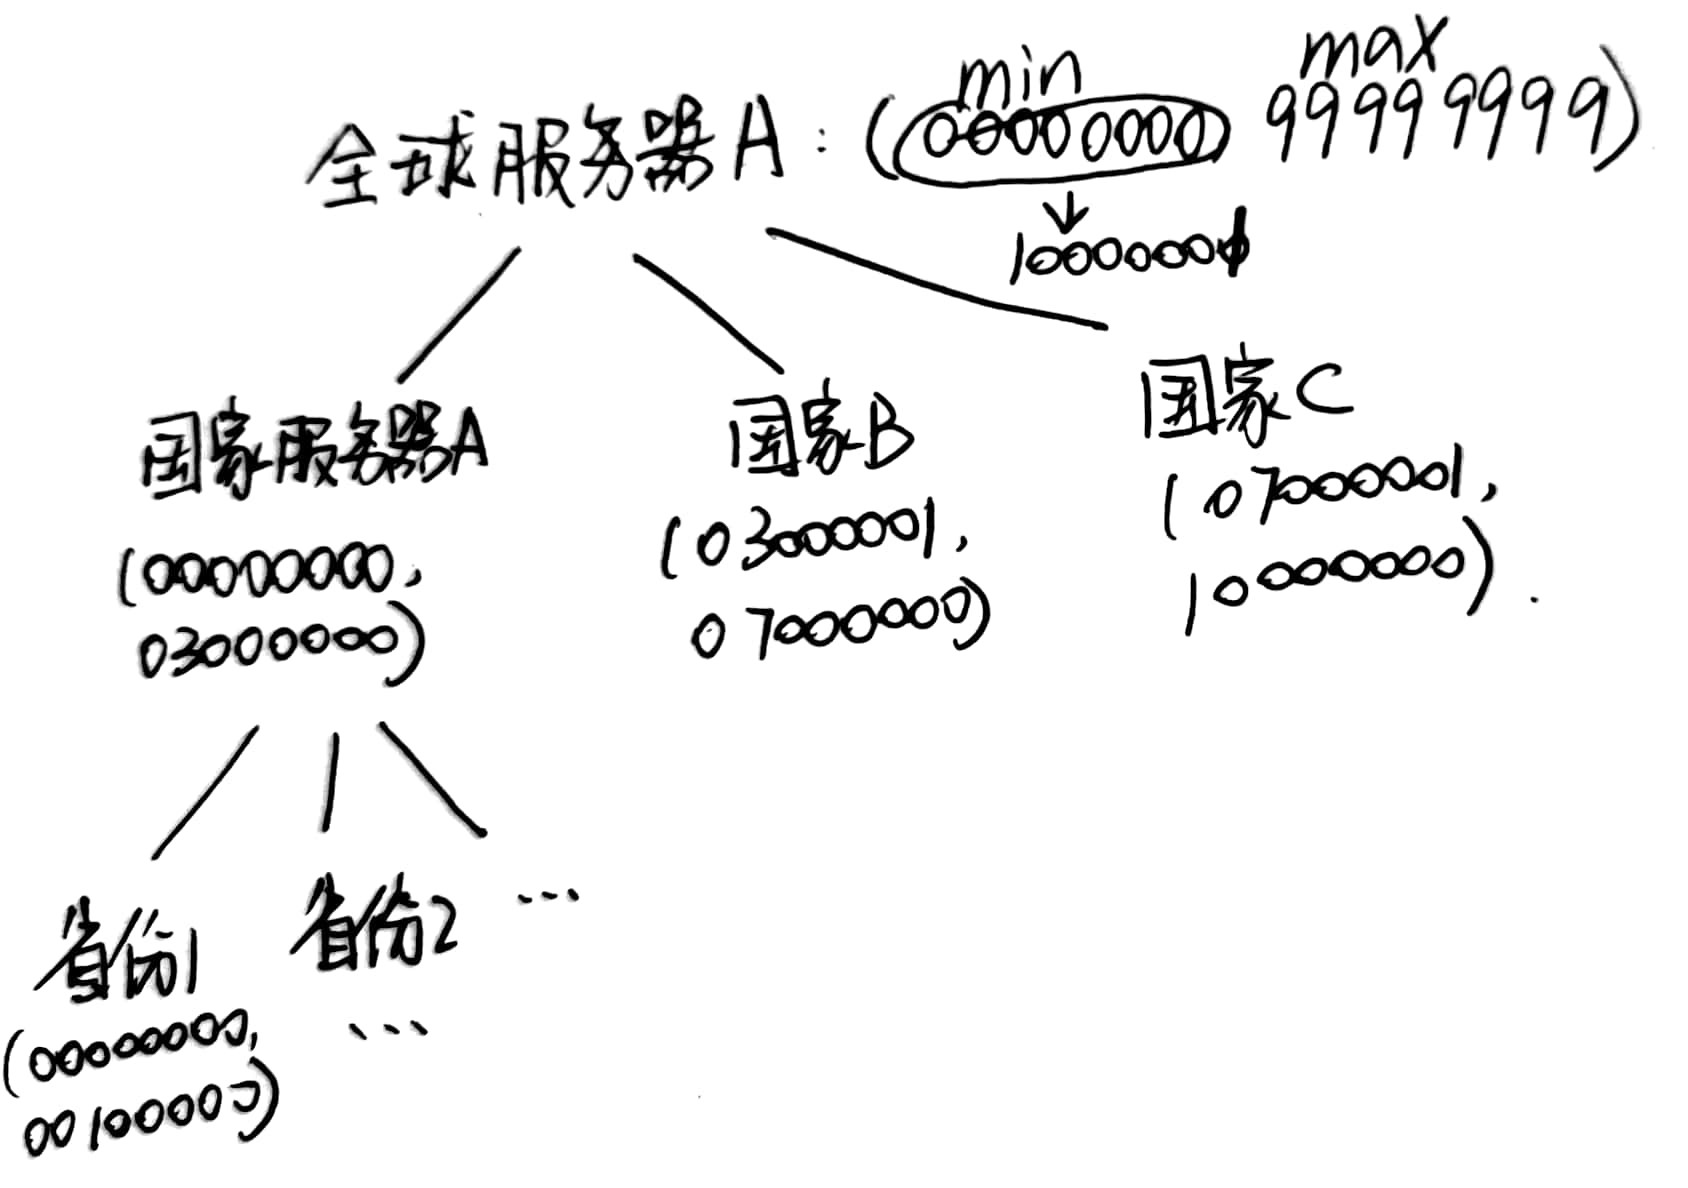 min max
全球服务器A：(00000000 99999999)
10000001
国家服务器A
(00000000,
03000000)
国家B
(03000001,
07000000)
国家C
(07000001,
10000000).
省份1
(00000000,
00100000)
省份2
...
...